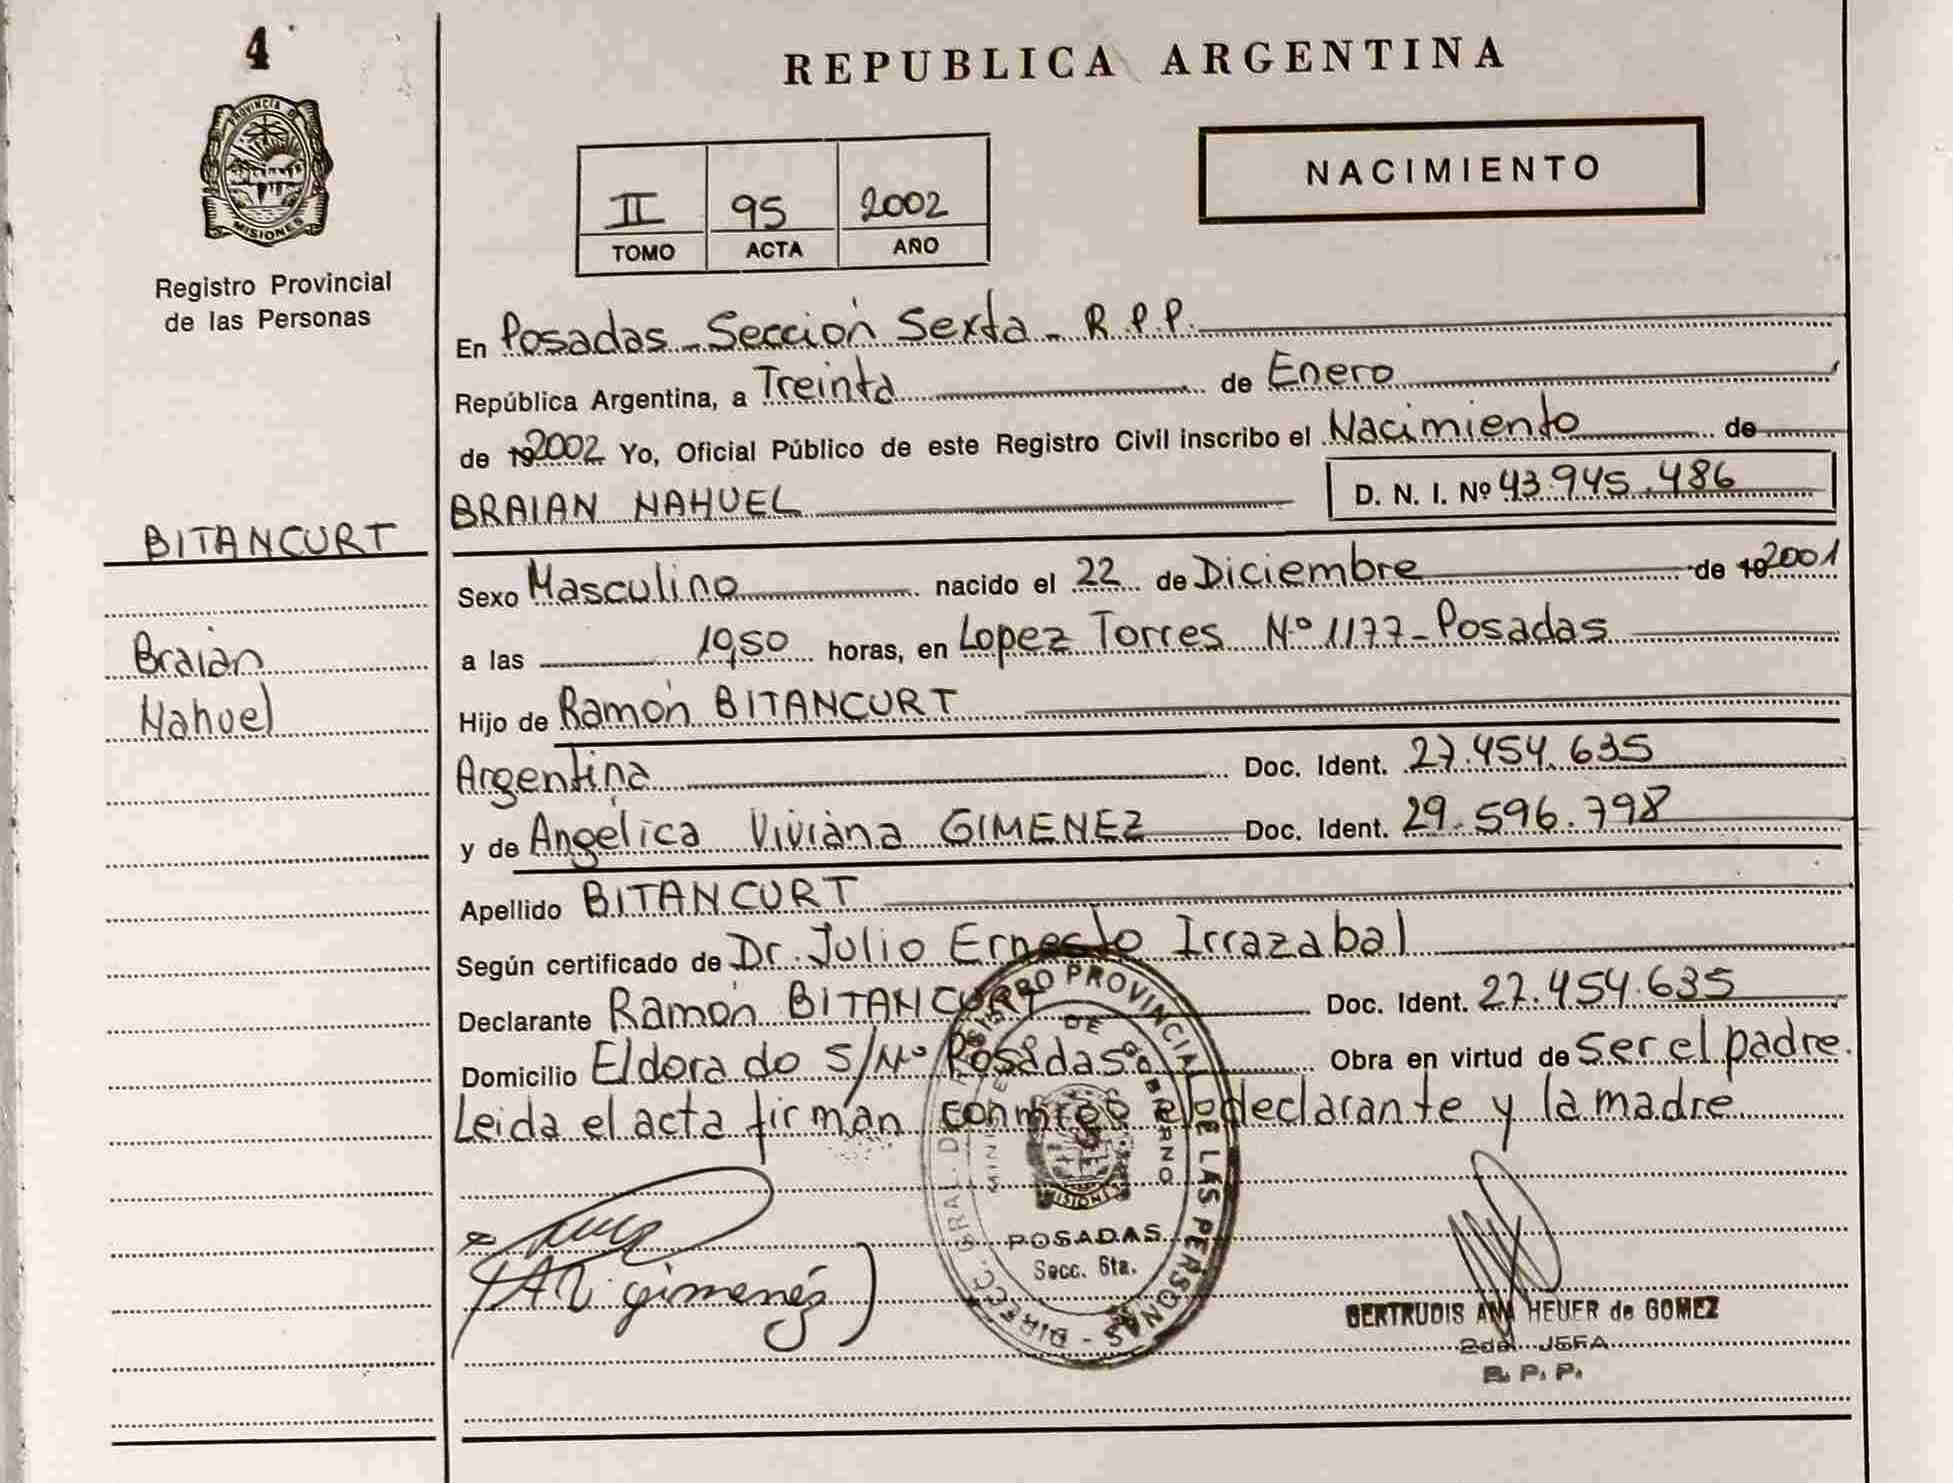 4
PROVINCIA DE
MISIONES
Registro Provincial
de las Personas
BITANCURT
Braian
Nahuel
REPUBLICA ARGENTINA
II 95 2002
TOMO ACTA AÑO
NACIMIENTO
En Posadas - Sección Sexta - R.P.P.
República Argentina, a Treinta de Enero
de 192002 Yo, Oficial Público de este Registro Civil inscribo el Nacimiento de
BRAIAN NAHUEL D. N. I. Nº 43.945.486
Sexo Masculino nacido el 22 de Diciembre de 192001
a las 19,50 horas, en Lopez Torres Nº 1177 - Posadas
Hijo de Ramón BITANCURT
Argentina Doc. Ident. 27.454.635
y de Angélica Viviana GIMENEZ Doc. Ident. 29.596.798
Apellido BITANCURT
Según certificado de Dr. Julio Ernesto Irrazabal
Declarante Ramón BITANCURT Doc. Ident. 27.454.635
Domicilio Eldorado S/Nº Posadas Obra en virtud de Ser el padre.
Leida el acta firman conmigo el declarante y la madre
DIRECC. GRAL. DEL REGISTRO PROVINCIAL DE LAS PERSONAS
MINISTERIO DE GOBIERNO
MISIONES
POSADAS
Secc. 6ta.
A V Gimenez
GERTRUDIS ANA HEUER de GOMEZ
2da. JEFA
R. P. P.